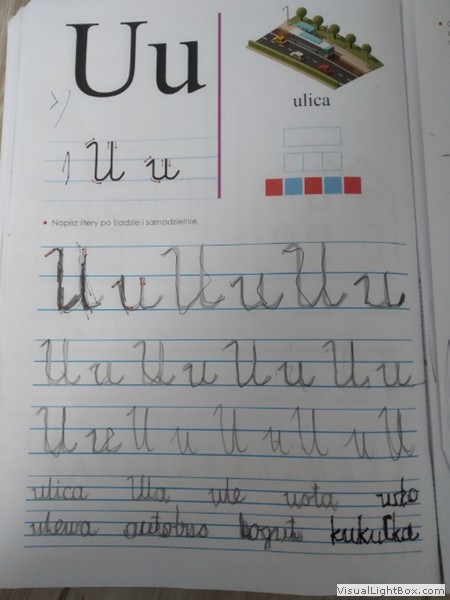 Uu
ulica
U u
Napisz litery po śladzie i samodzielnie.
U u U u U u
U u U u U u U u
U u U u U u U u U
ulica Ula ule usta
ulewa autobus kogut kukułka
VisualLightBox.com